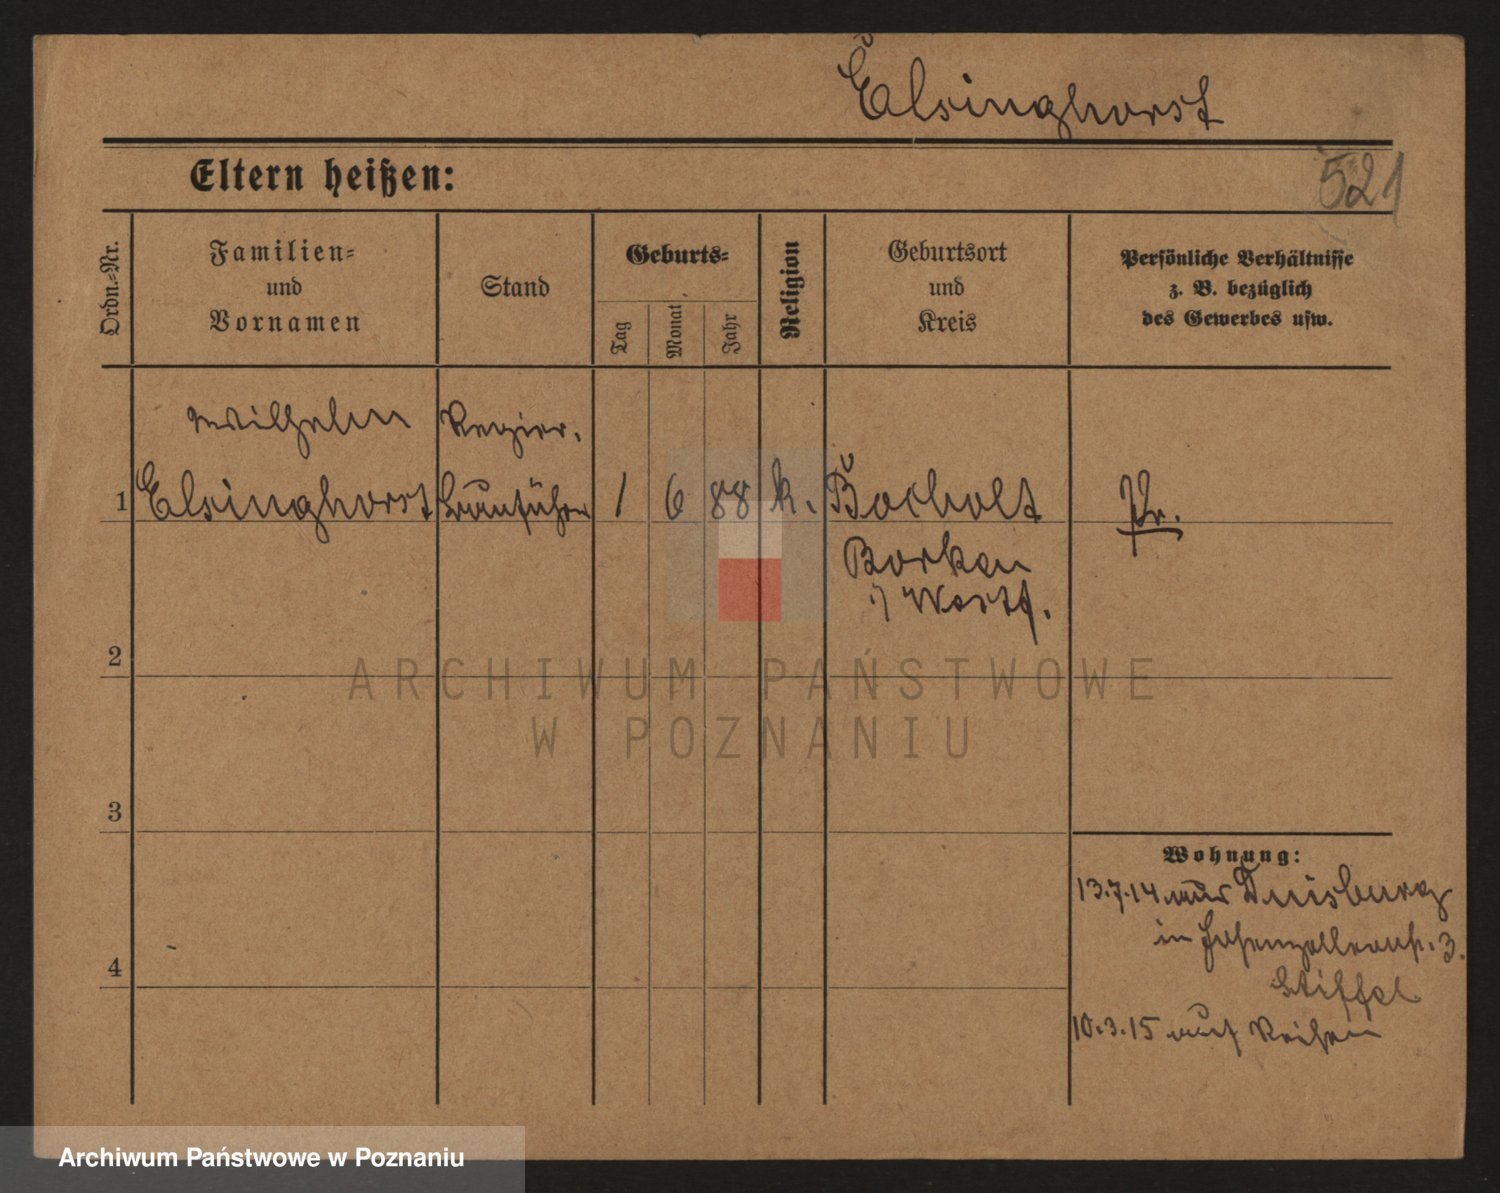 Elsinghorst
Eltern heißen:
521
Ordn.-Nr.
Familien-
und
Vornamen
Stand
Geburts-
Tag
Monat
Jahr
Religion
Geburtsort
und
Kreis
Persönliche Verhältnisse
z. B. bezüglich
des Gewerbes usw.
Wilhelm
Regier.
1
Elsinghorst
Bauführer
1
6
88
k.
Bocholt
Pr.
Borken
i/ Westf.
2
ARCHIWUM PAŃSTWOWE
W POZNANIU
3
Wohnung:
13.7.14 aus Duisburg
in Hohenzollernstr. 3.
4
Stiffel
10.3.15 auf Reisen
Archiwum Państwowe w Poznaniu